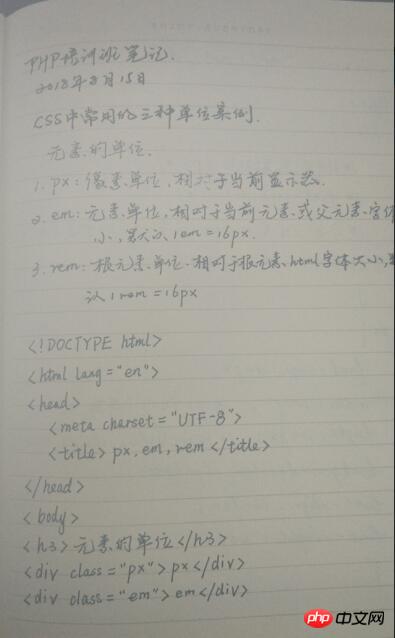 PHP培训班笔记.
2018年8月15日
CSS中常用的三种单位案例.
元素的单位.
1. px:像素单位,相对于当前显示器.
2. em:元素单位,相对于当前元素或父元素字体
小,默认1em=16px.
3. rem:根元素单位.相对于根元素html字体大小,默
认1rem=16px
<!DOCTYPE html>
<html lang="en">
<head>
<meta charset="UTF-8">
<title>px,em,rem</title>
</head>
<body>
<h3>元素的单位</h3>
<div class="px">px</div>
<div class="em">em</div>
php 中文网